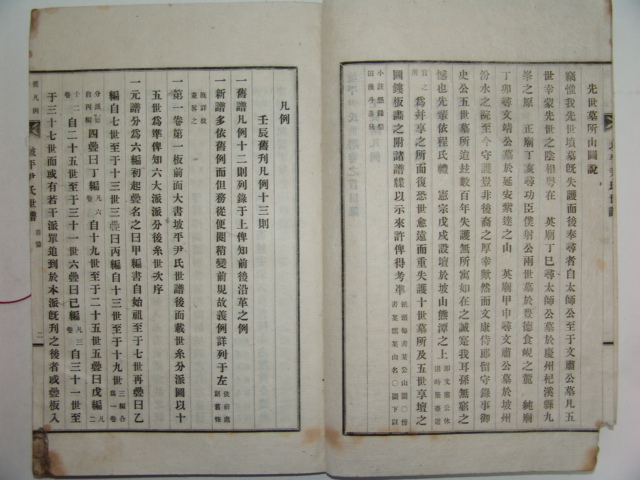 先世墓所山圖說
竊惟我先世墳墓旣失護而後奉尋者自太師公至于文肅公墓凡五
世幸蒙先世之陰相粤在 英廟丁巳尋太師公墓於慶州杞溪縣九
峯之原 正廟丁亥尋功臣僕射公兩世墓於豊德食峴之麓 純廟
丁卯尋文靖公墓於延安紫達之山 英廟甲申尋文肅公墓於坡州
汾水之皖至今守護豈非後裔之厚幸歟然而文康侍郎留守錄事御
史公五世墓所迨玆數百年失護無處可尋如在之誠寔我耳孫無窮之
慟也先輩依程氏禮 憲宗戊戌設壇於坡山熊潭之上
爲幷享之所而復恐世愈遠而重失護十世墓所及五世享壇之
圖鋟板畵之附諸譜牒以示來許俾得考準
凡例
壬辰舊刋凡例十三則
一舊譜凡例十二則列錄于上俾知前後沿革之例
一新譜多依舊例而但舊從便閱稍變前規故義例詳列于左
一第一卷第一板前面大書坡平尹氏世譜後而載世系分派圖以十
五世爲準俾知六大派派分後系世次序
一元譜分爲六編初起疊名之曰甲編書自始祖至于七世再疊曰乙
編自七世至于十三世三疊曰丙編自十三世至于十九世
四疊曰丁編 自十九世至于二十五世五疊曰戊編
自二十五世至于三十一世六疊曰己編 自三十一世至
于三十七世而或有若干派單追到於本派已刋之後者或疊板入
坡平尹氏世譜
舊凡例
二